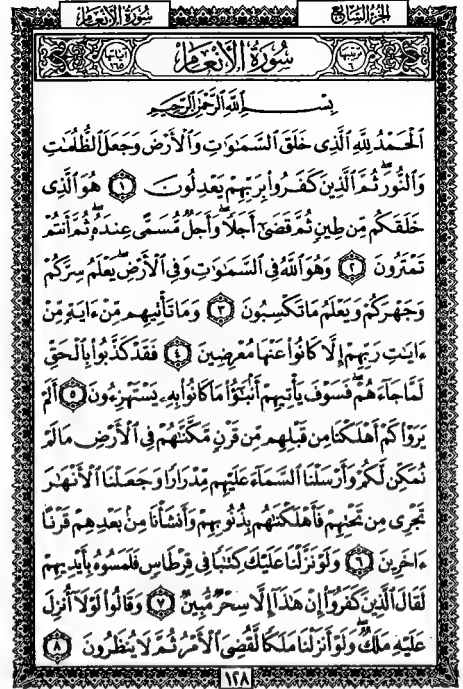 سُورَةُ الْأَنْعَامِ
الجُزْءُ السَّابِعُ
سُورَةُ الْأَنْعَامِ
ترتيبها ٦
آياتها ١٦٥
بِسْمِ اللَّهِ الرَّحْمَٰنِ الرَّحِيمِ
الْحَمْدُ لِلَّهِ الَّذِي خَلَقَ السَّمَٰوَٰتِ وَالْأَرْضَ وَجَعَلَ الظُّلُمَٰتِ
وَالنُّورَ ۖ ثُمَّ الَّذِينَ كَفَرُوا بِرَبِّهِمْ يَعْدِلُونَ ١ هُوَ الَّذِي
خَلَقَكُم مِّن طِينٍ ثُمَّ قَضَىٰٓ أَجَلًا ۖ وَأَجَلٌ مُّسَمًّى عِندَهُۥ ۖ ثُمَّ أَنتُمْ
تَمْتَرُونَ ٢ وَهُوَ اللَّهُ فِي السَّمَٰوَٰتِ وَفِي الْأَرْضِ ۖ يَعْلَمُ سِرَّكُمْ
وَجَهْرَكُمْ وَيَعْلَمُ مَا تَكْسِبُونَ ٣ وَمَا تَأْتِيهِم مِّنْ ءَايَةٍ مِّنْ
ءَايَٰتِ رَبِّهِمْ إِلَّا كَانُوا عَنْهَا مُعْرِضِينَ ٤ فَقَدْ كَذَّبُوا بِالْحَقِّ
لَمَّا جَآءَهُمْ ۖ فَسَوْفَ يَأْتِيهِمْ أَنۢبَٰٓؤُا مَا كَانُوا بِهِۦ يَسْتَهْزِءُونَ ٥ أَلَمْ
يَرَوْا كَمْ أَهْلَكْنَا مِن قَبْلِهِم مِّن قَرْنٍ مَّكَّنَّٰهُمْ فِي الْأَرْضِ مَا لَمْ
نُمَكِّن لَّكُمْ وَأَرْسَلْنَا السَّمَآءَ عَلَيْهِم مِّدْرَارًا وَجَعَلْنَا الْأَنْهَٰرَ
تَجْرِي مِن تَحْتِهِمْ فَأَهْلَكْنَٰهُم بِذُنُوبِهِمْ وَأَنشَأْنَا مِنۢ بَعْدِهِمْ قَرْنًا
ءَاخَرِينَ ٦ وَلَوْ نَزَّلْنَا عَلَيْكَ كِتَٰبًا فِي قِرْطَاسٍ فَلَمَسُوهُ بِأَيْدِيهِمْ
لَقَالَ الَّذِينَ كَفَرُوا إِنْ هَٰذَآ إِلَّا سِحْرٌ مُّبِينٌ ٧ وَقَالُوا لَوْلَآ أُنزِلَ
عَلَيْهِ مَلَكٌ ۖ وَلَوْ أَنزَلْنَا مَلَكًا لَّقُضِيَ الْأَمْرُ ثُمَّ لَا يُنظَرُونَ ٨
١٢٨